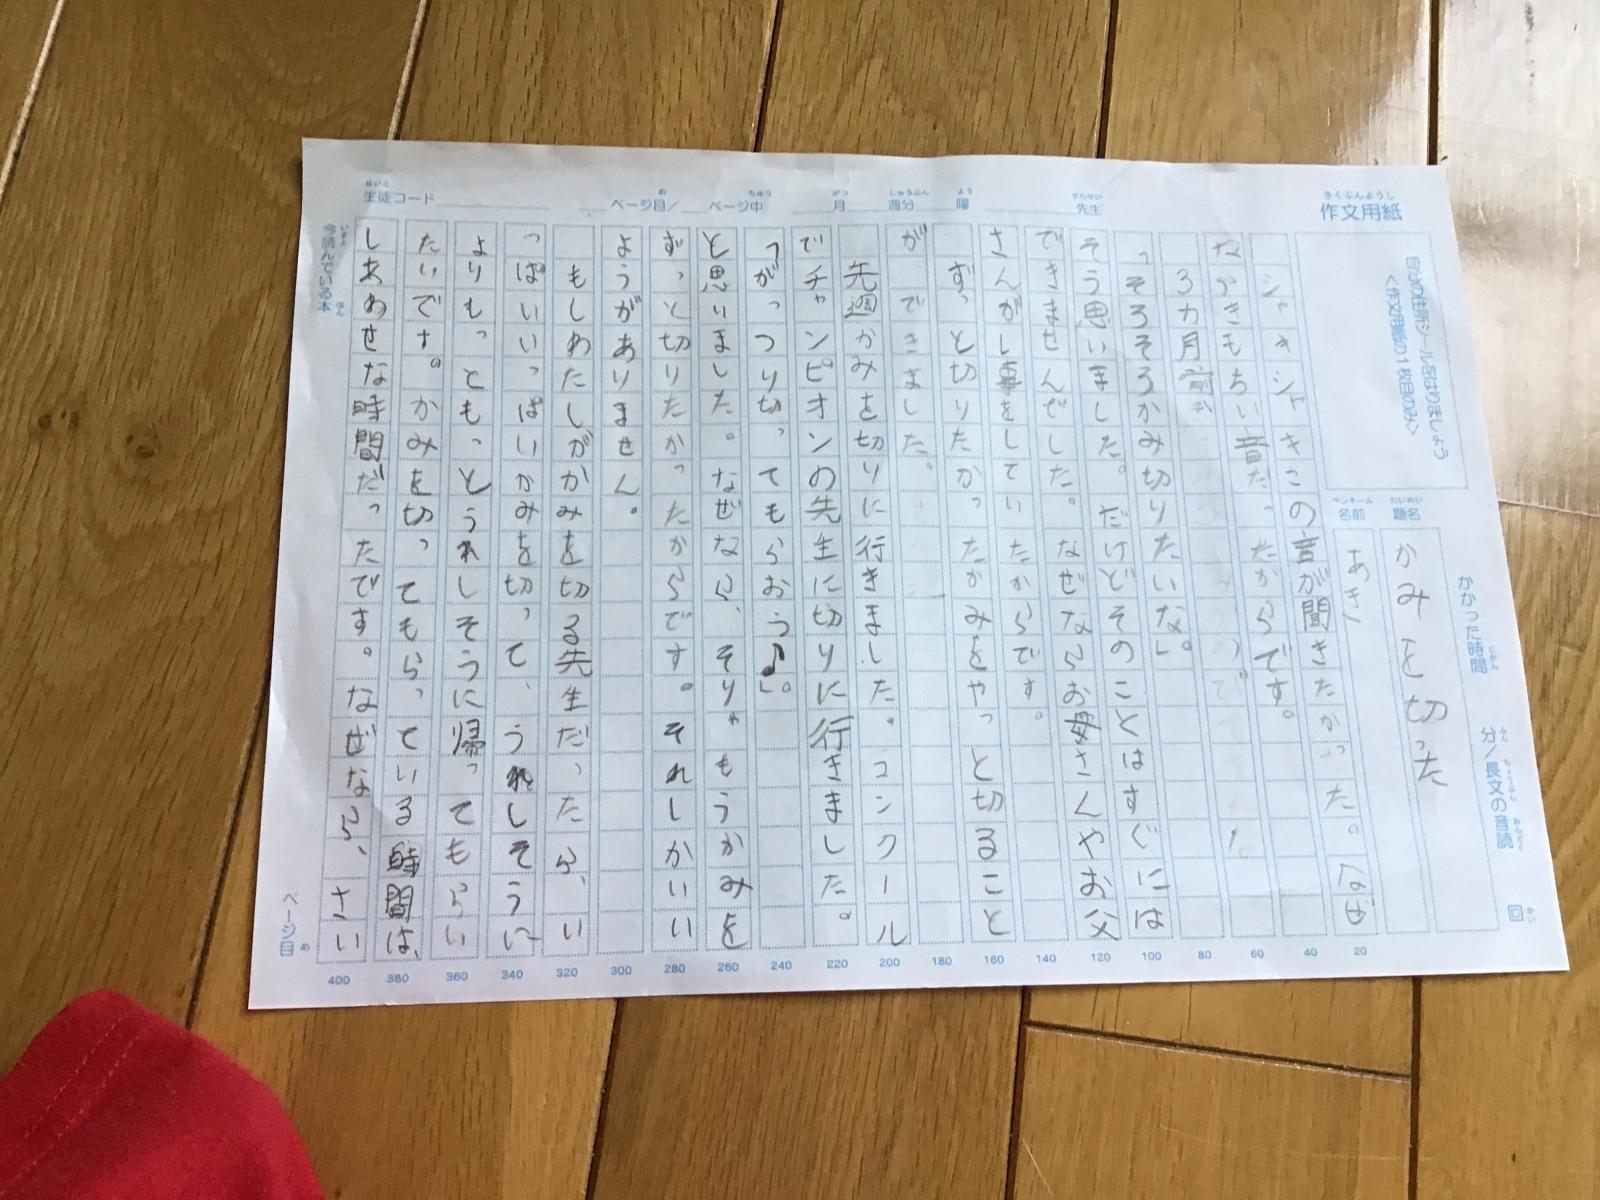 作文用紙
さくぶんようし
自分の住所シールをはりましょう
<作文用紙の1枚目のみ>
かかった時間 分/長文の音読 回
じかん ふん ちょうぶん おんどく かい
題名 かみを切った
だいめい
名前 あき
ペンネーム
先生
せんせい
曜
よう
週分
しゅうぶん
月
がつ
ページ目/ ページ中
め ちゅう
生徒コード
せいと
シャキシャキこの音が聞きたかった。なぜ
なら きもちい音だったからです。
3カ月前
「そろそろかみ切りたいな」。
そう思いました。だけどそのことはすぐには
できませんでした。なぜならお母さんやお父
さんがし事をしていたからです。
ずっと切りたかったかみをやっと切ること
ができました。
先週かみを切りに行きました。コンクール
でチャンピオンの先生に切りに行きました。
「がっつり切ってもらおう♪」。
と思いました。なぜなら、そりゃもうかみを
ずっと切りたかったからです。それしかいい
ようがありません。
もしわたしがかみを切る先生だったら、い
っぱいいっぱいかみを切って、うれしそうに
よりもっともっとうれしそうに帰ってもらい
たいです。かみを切ってもらっている時間は、
しあわせな時間だったです。なぜなら、さい
20
40
60
80
100
120
140
160
180
200
220
240
260
280
300
320
340
360
380
400
今読んでいる本
いまよ ほん
ページ目
め